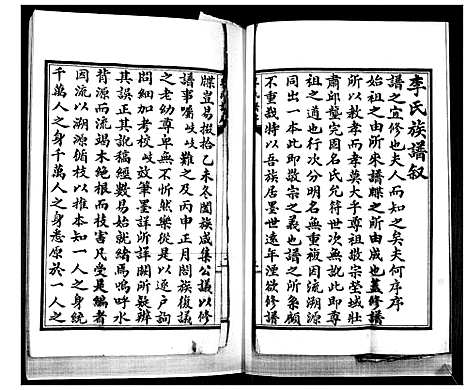 李氏族譜叙
譜之宜修也夫人而知之矣夫何序序
始祖之由所來譜牒之所由成也蓋修譜
所以教孝而孝莫大乎尊祖敬宗塋城壯
肅邱壟完固名氏允符世次無訛此即尊
祖之道也行次分明名無重複因流溯源
同出一本此即敬宗之義也譜之所系顧
不重哉特以吾族居墨世遠年湮欲修譜
牒豈易掇拾乙未冬闔族咸集公議以修
譜事囑岐岐難之及丙申正月闔族復議
之老幼尊卑無不忻然樂從是以逐户詢
問細加考校岐敢筆墨詳所詳闕所疑辦
其誤正其訛稿經數易始就緒焉嗚呼水
背源而流竭木絶根而枝害凡受是編者
因流以溯源循枝以推本知一人之身統
千萬人之身千萬人之身悉原於一人之